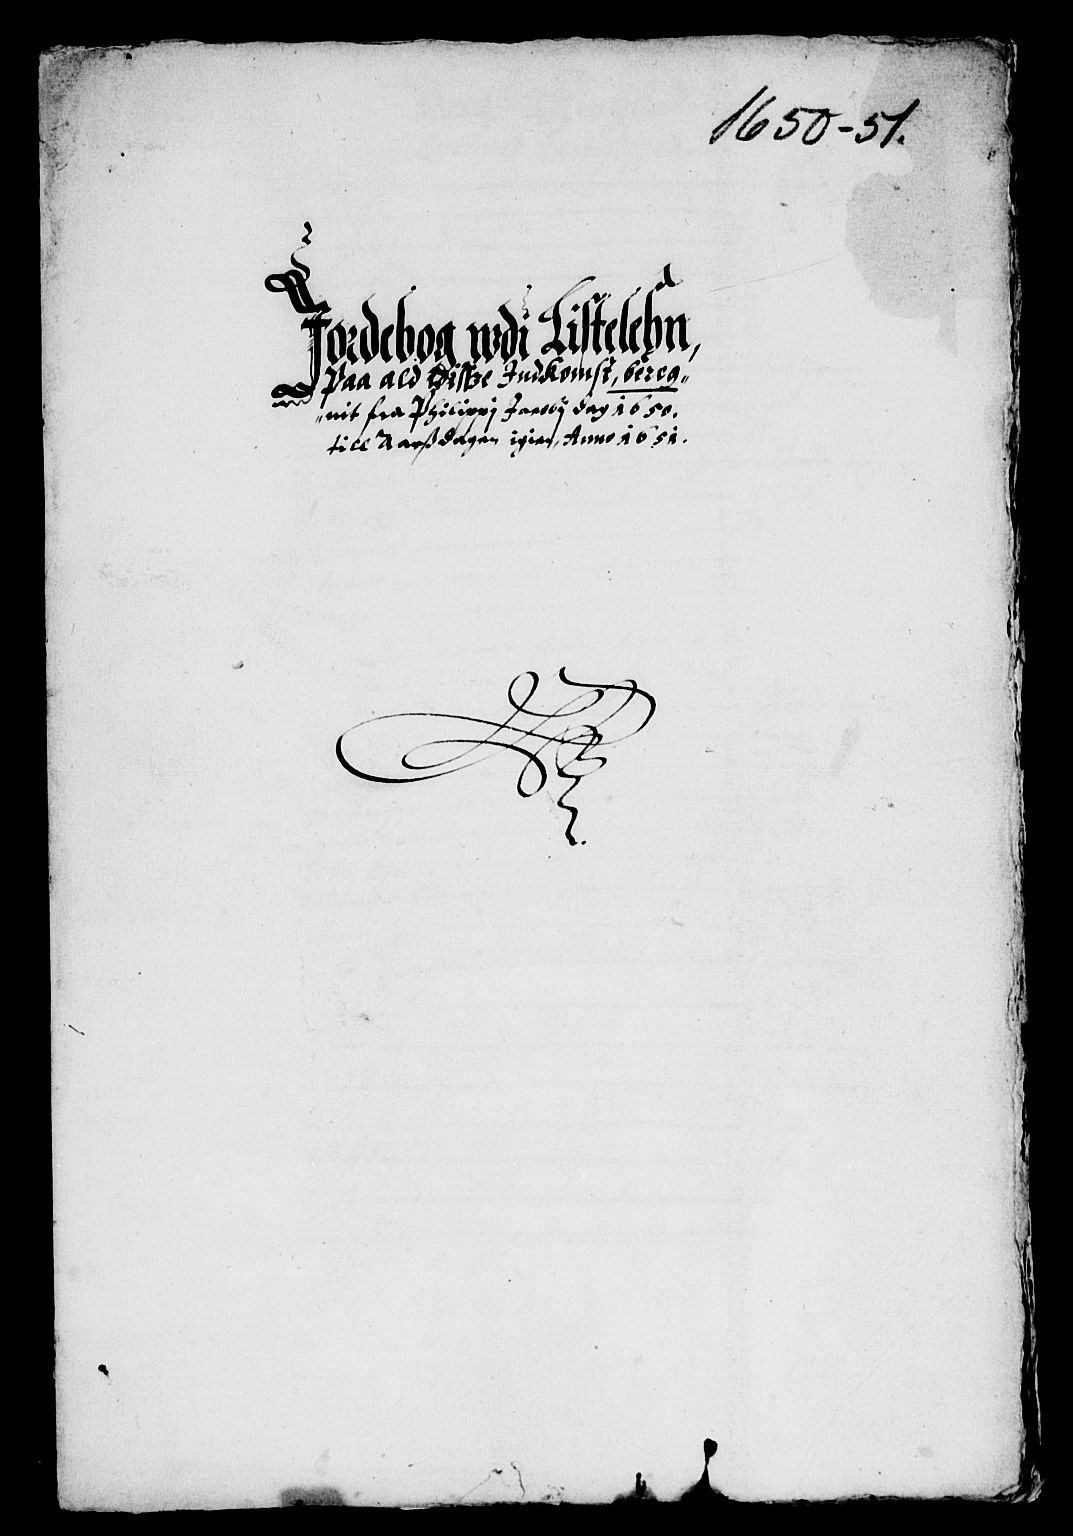 1650-51.
Jordebog wdi Listelehn,
Paa ald Disse Indkomst, bereg„
„nit fra Philippj Jacobj dag 1650.
till Aarßdagen igien, Anno 1651.